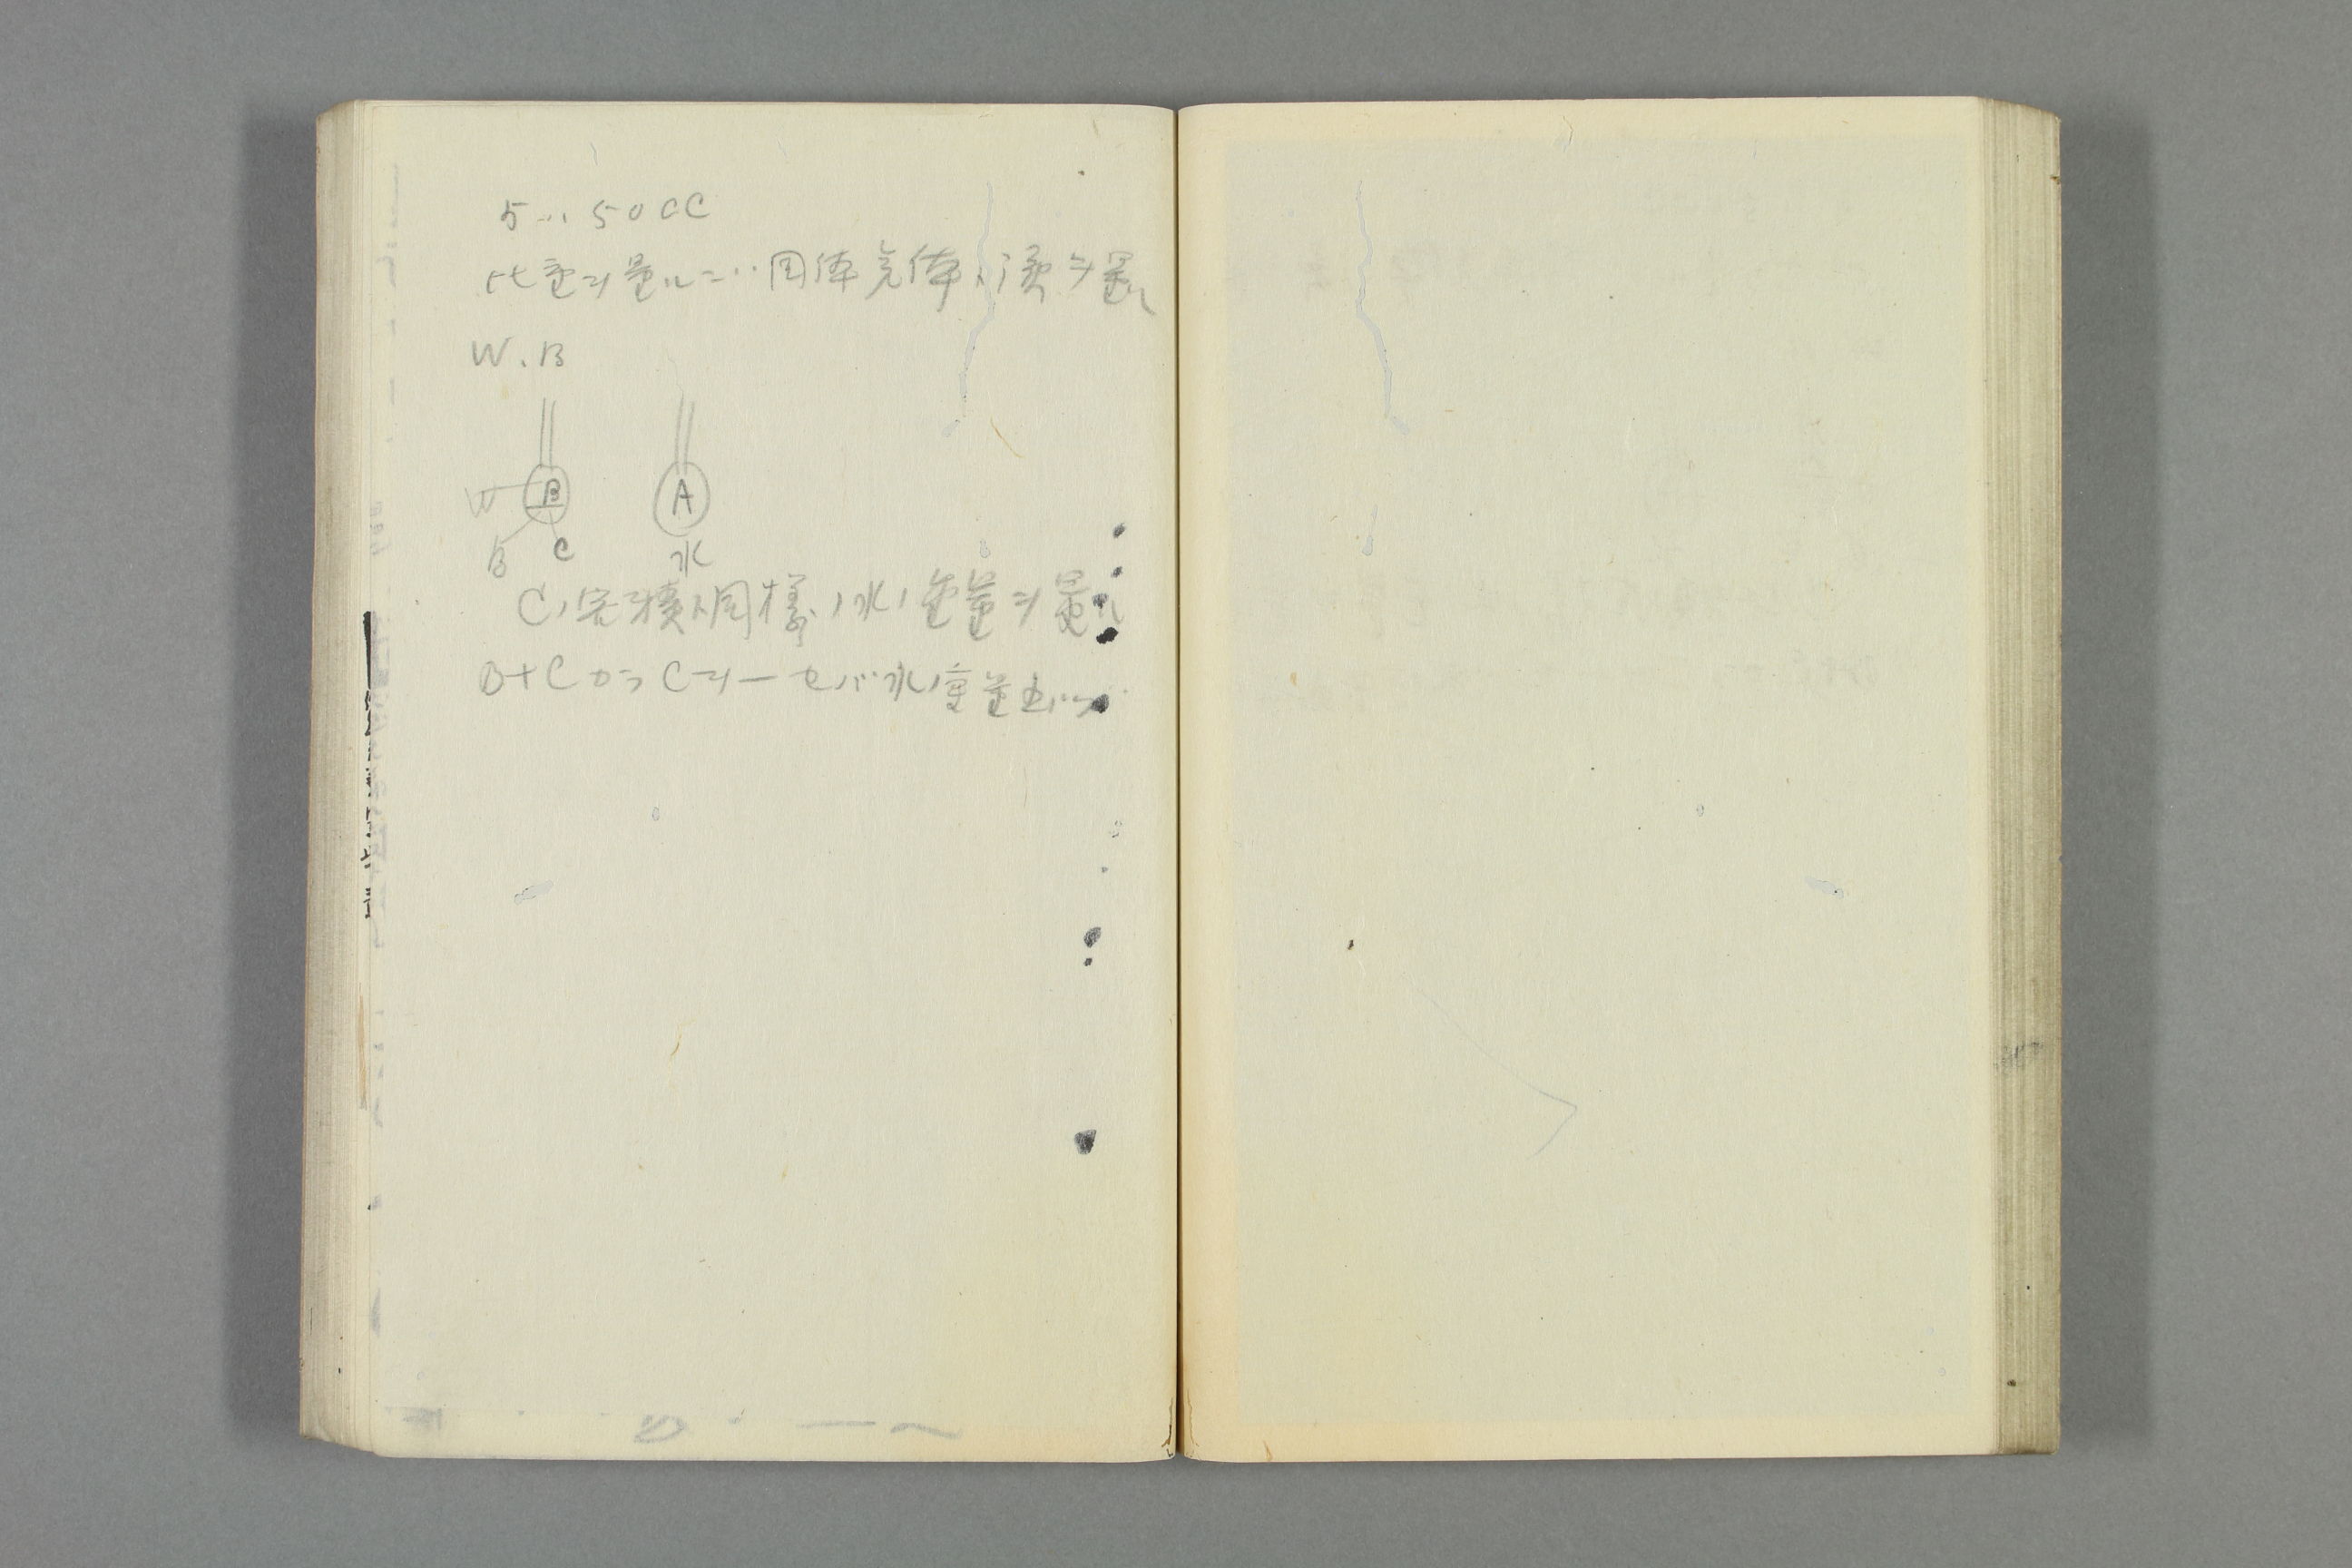 5…50CC
比重ヲ量ルニハ固体気体ノ積ヲ量ル
W.B
B A
W
B C 水
Cノ容積ト同様ノ水ノ重量ヲ量ル
B+CカラCヲ一セバ水ノ重量出ヅ